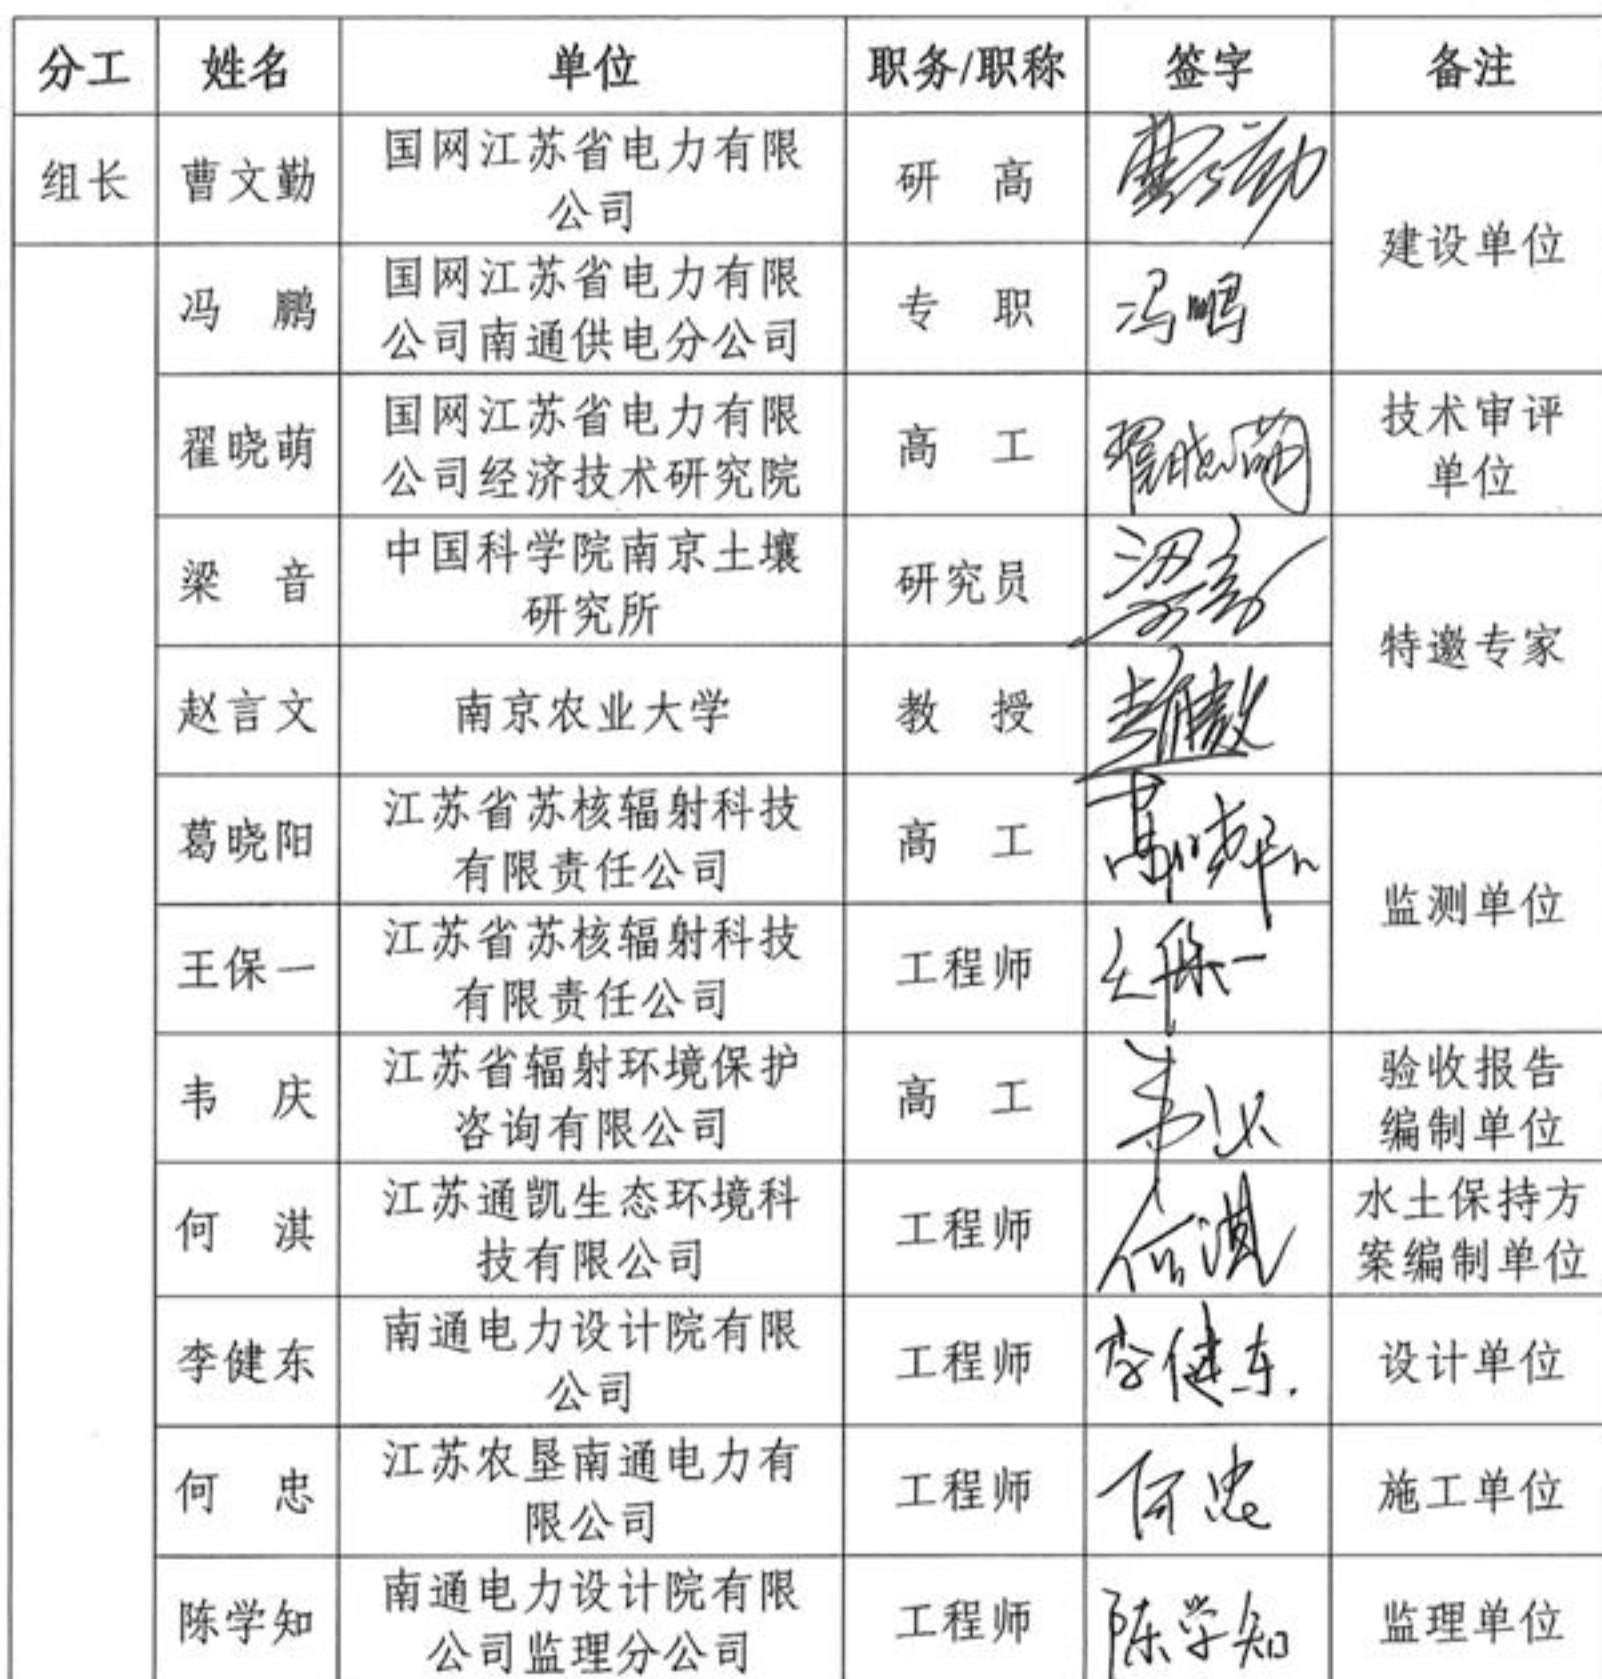 分工 姓名 单位 职务/职称 签字 备注
组长 曹文勤 国网江苏省电力有限
公司 研 高 曹文勤 建设单位
冯 鹏 国网江苏省电力有限
公司南通供电分公司 专 职 冯鹏
翟晓萌 国网江苏省电力有限
公司经济技术研究院 高 工 翟晓萌 技术审评
单位
梁 音 中国科学院南京土壤
研究所 研究员 梁音 特邀专家
赵言文 南京农业大学 教 授
葛晓阳 江苏省苏核辐射科技
有限责任公司 高 工 监测单位
王保一 江苏省苏核辐射科技
有限责任公司 工程师 王保一
韦 庆 江苏省辐射环境保护
咨询有限公司 高 工 韦庆 验收报告
编制单位
何 淇 江苏通凯生态环境科
技有限公司 工程师 何淇 水土保持方
案编制单位
李健东 南通电力设计院有限
公司 工程师 李健东. 设计单位
何 忠 江苏农垦南通电力有
限公司 工程师 何忠 施工单位
陈学知 南通电力设计院有限
公司监理分公司 工程师 陈学知 监理单位